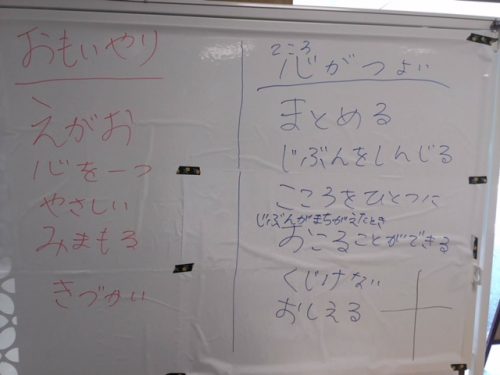 おもいやり
えがお
心を一つ
やさしい
みまもる
きづかい
こころ
心がつよい
まとめる
じぶんをしんじる
こころをひとつに
じぶんがまちがえたとき
おこることができる
くじけない
おしえる